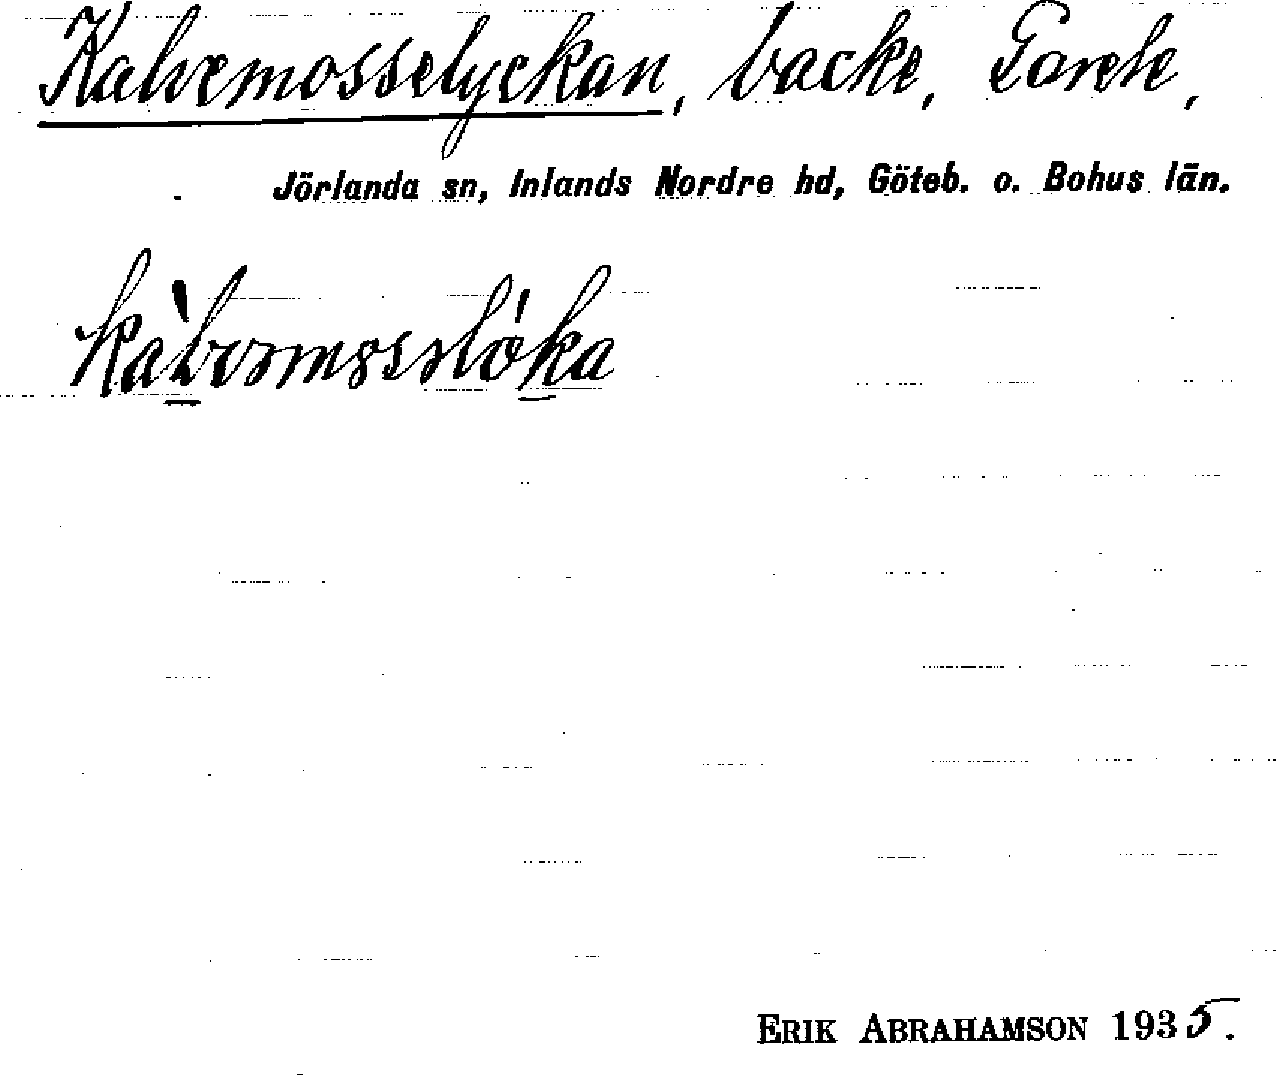 Kalvemosselyckan, backe, Sorele,
Jörlanda sn, Inlands Nordre hd, Göteb. o. Bohus län.
ERIK ABRAHAMSON 1935.